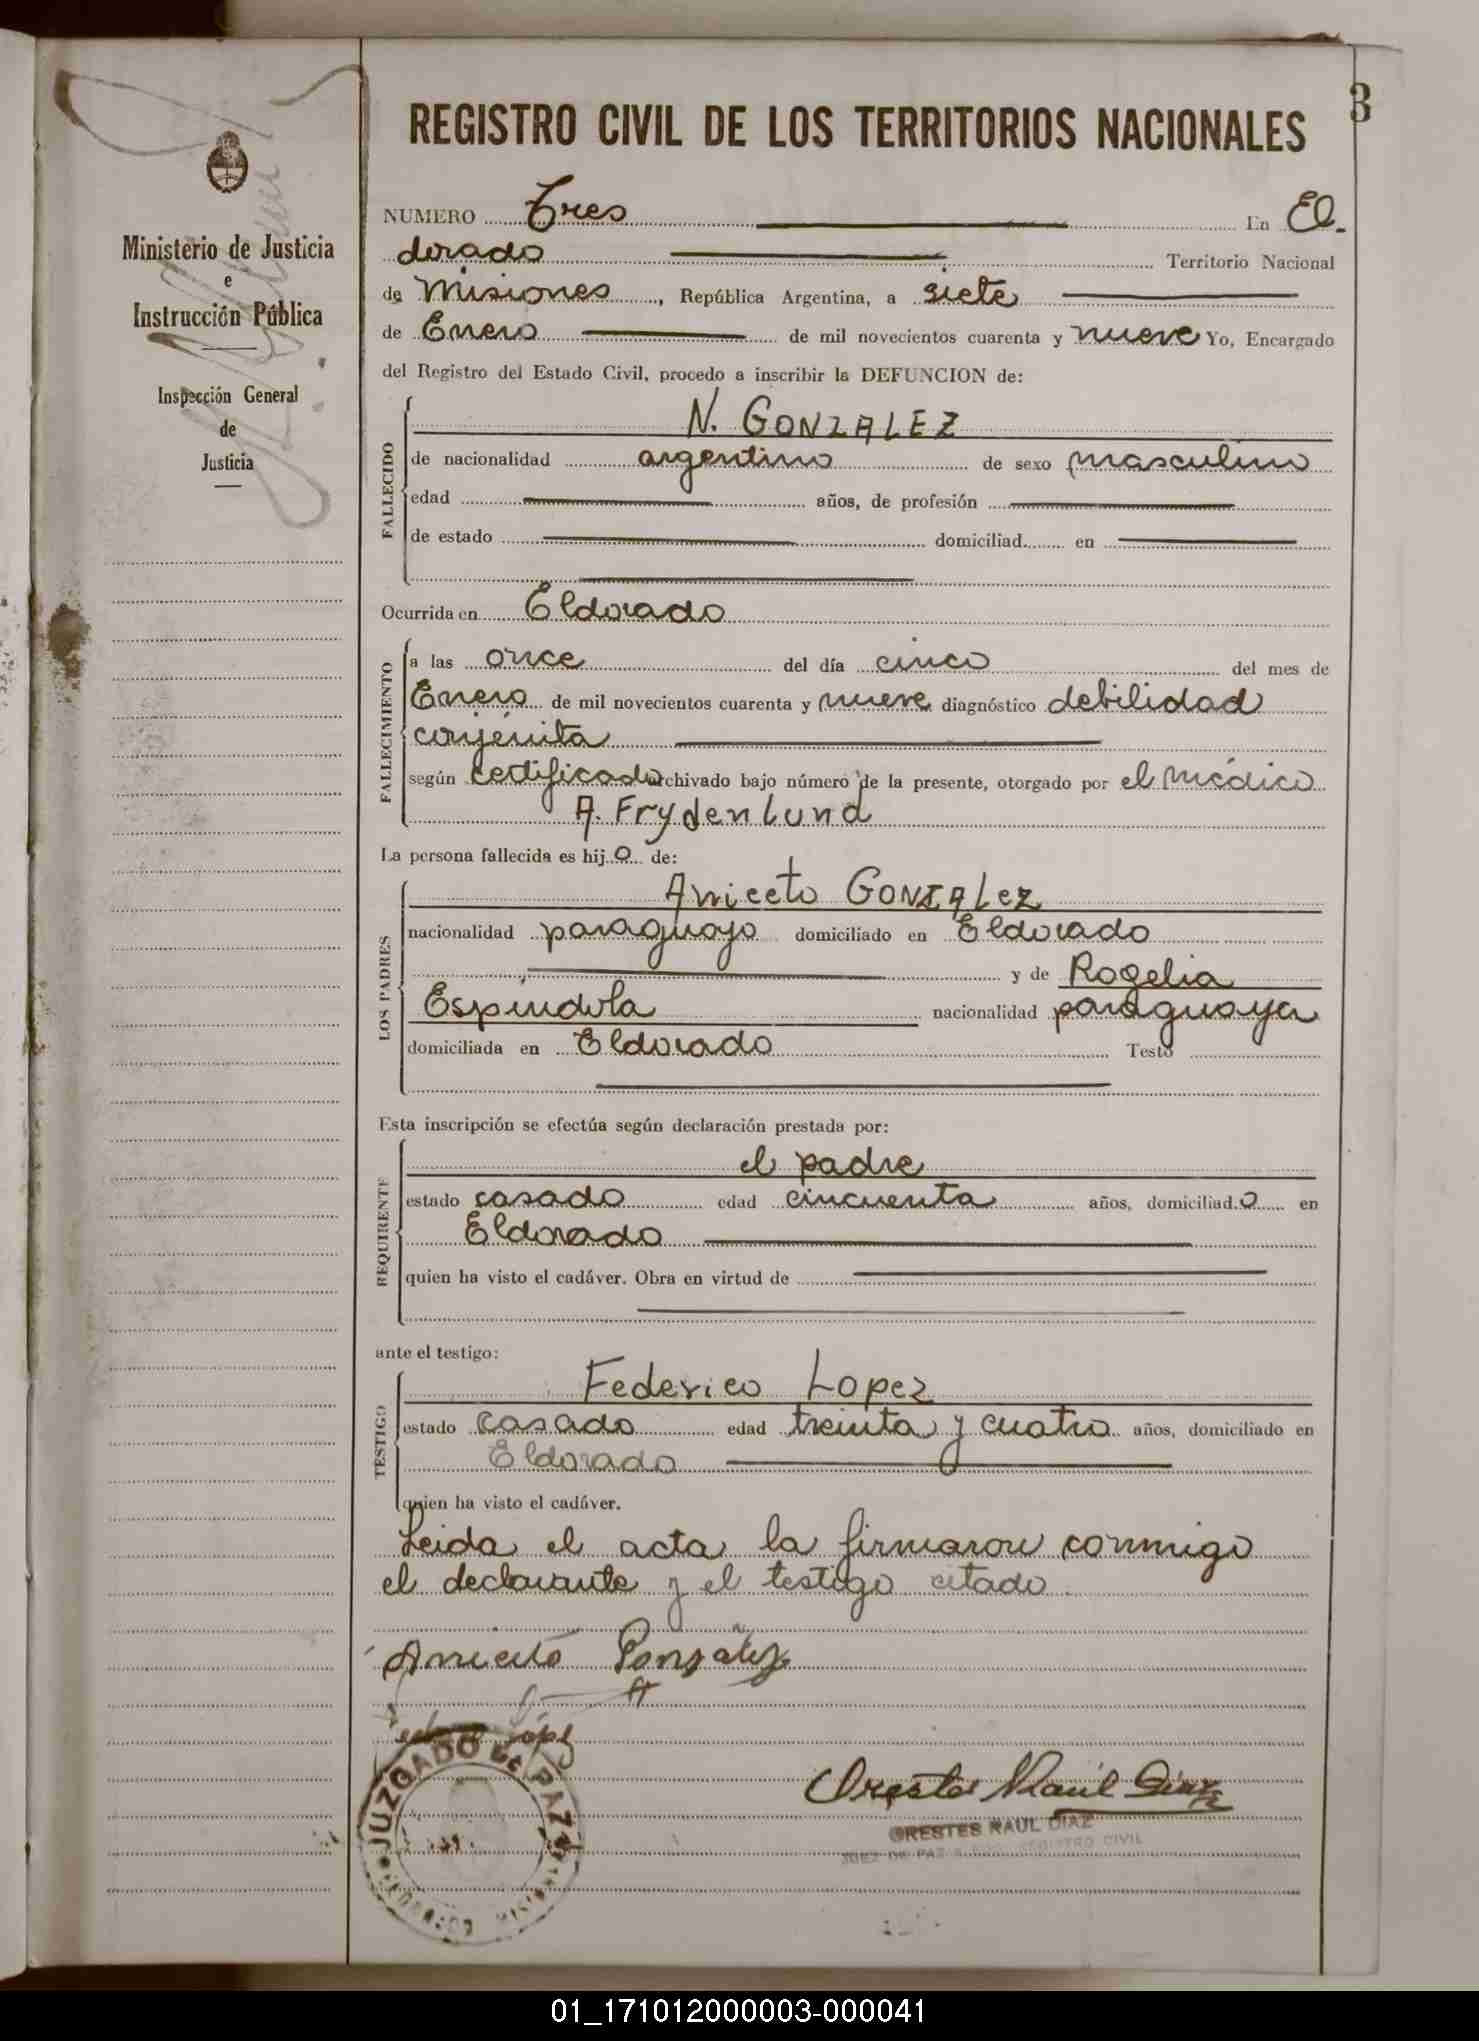 3
REGISTRO CIVIL DE LOS TERRITORIOS NACIONALES
Ministerio de Justicia
e
Instrucción Pública
Inspección General
de
Justicia
NUMERO Tres En El-
dorado Territorio Nacional
de Misiones, República Argentina, a siete
de Enero de mil novecientos cuarenta y nueve Yo, Encargado
del Registro del Estado Civil, procedo a inscribir la DEFUNCION de:
FALLECIDO
N. GONZALEZ
de nacionalidad argentino de sexo masculino
edad años, de profesión
de estado domiciliad en
Ocurrida en Eldorado
FALLECIMIENTO
a las once del día cinco del mes de
Enero de mil novecientos cuarenta y nueve diagnóstico debilidad
conjénita
según certificado archivado bajo número de la presente, otorgado por el médico
A. Frydenlund
La persona fallecida es hijo de:
LOS PADRES
Aniceto GONZALEZ
nacionalidad paraguayo domiciliado en Eldorado
y de Rogelia
Espíndola nacionalidad paraguaya
domiciliada en Eldorado Testó
Esta inscripción se efectúa según declaración prestada por:
REQUIRENTE
el padre
estado casado edad cincuenta años, domiciliado en
Eldorado
quien ha visto el cadáver. Obra en virtud de
ante el testigo:
TESTIGO
Federico Lopez
estado casado edad treinta y cuatro años, domiciliado en
Eldorado
quien ha visto el cadáver.
Leida el acta la firmaron conmigo
el declarante y el testigo citado.
Aniceto Gonzalez
JUZGADO DE PAZ
ELDORADO MISIONES
Orestes Raúl Diaz
ORESTES RAUL DIAZ
JUEZ DE PAZ REGISTRO CIVIL
01_171012000003-000041